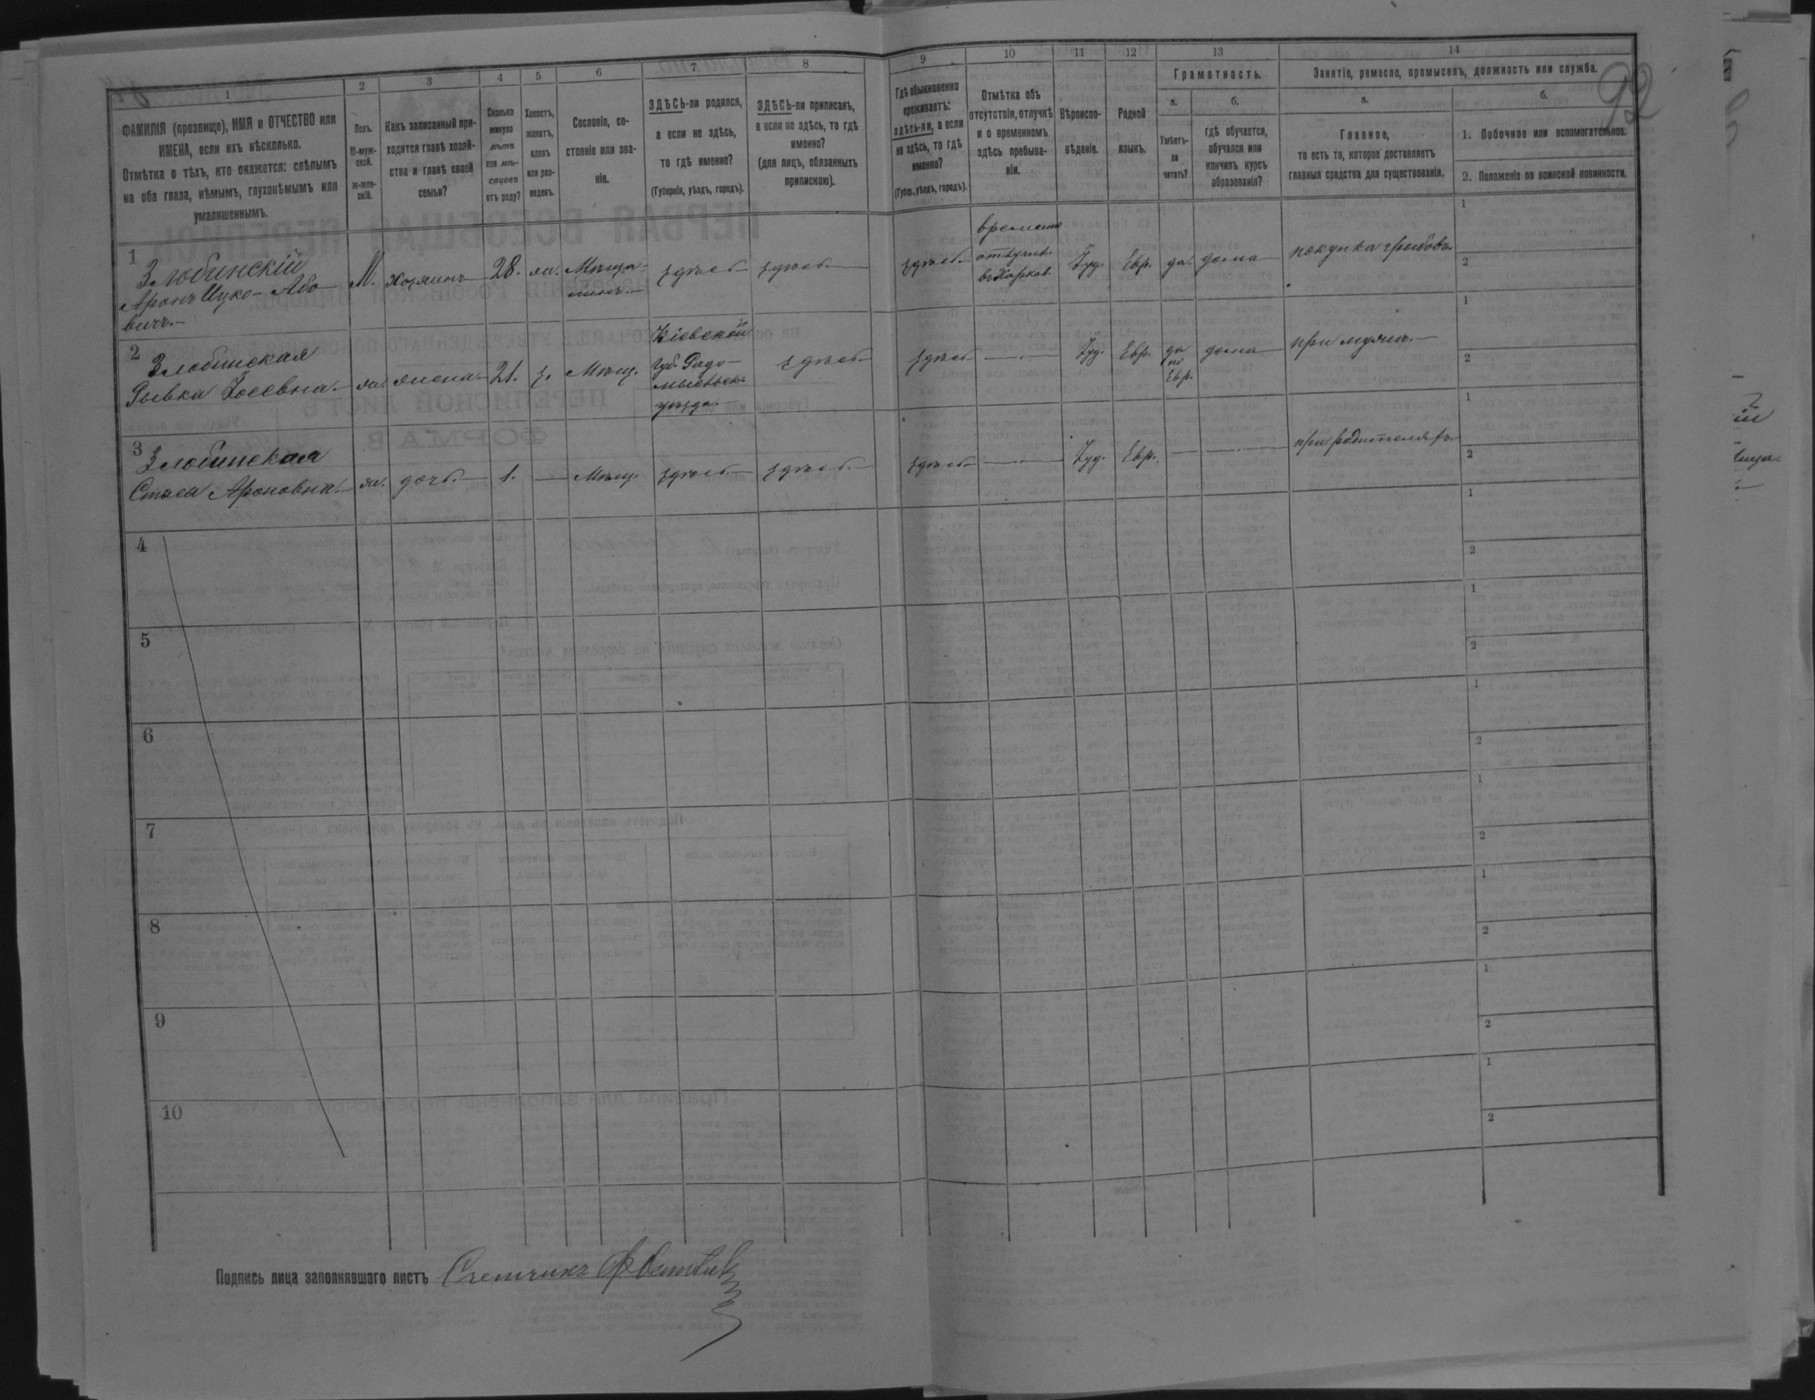 92
1
2
3
4
5
6
7
8
9
10
11
12
13
14
ФАМИЛІЯ (прозвище), ИМЯ и ОТЧЕСТВО или
ИМЕНА, если ихъ нѣсколько.
Отмѣтка о тѣхъ, кто окажется: слѣпымъ
на оба глаза, нѣмымъ, глухонѣмымъ или
умалишеннымъ.
Полъ.
М-муж-
ской.
Ж-жен-
скій.
Какъ записанный при-
ходится главѣ хозяй-
ства и главѣ своей
семьи?
Сколько
минуло
лѣтъ
или мѣ-
сяцевъ
отъ роду?
Холостъ,
женатъ,
вдовъ
или раз-
веденъ.
Сословіе, со-
стояніе или зва-
ніе.
ЗДѢСЬ-ли родился,
а если не здѣсь,
то гдѣ именно?
(Губернія, уѣздъ, городъ).
ЗДѢСЬ-ли приписанъ,
а если не здѣсь, то гдѣ
именно?
(для лицъ, обязанныхъ
припискою).
Гдѣ обыкновенно
проживаетъ:
здѣсь-ли, а если
не здѣсь, то гдѣ
именно?
(Губер., уѣздъ, городъ).
Отмѣтка объ
отсутствіи, отлучкѣ
и о временномъ
здѣсь пребыва-
ніи.
Вѣроиспо-
вѣданіе.
Родной
языкъ.
Грамотность.
а.
б.
Умѣетъ-
ли
читать?
гдѣ обучается,
обучался или
кончилъ курсъ
образованія?
Занятіе, ремесло, промыселъ, должность или служба.
а.
б.
Главное,
то есть то, которое доставляетъ
главныя средства для существованія.
1. Побочное или вспомогательное.
2. Положеніе по воинской повинности.
1
Злобинскій
Аронъ Ицко-Або
вичъ.
М.
хозяинъ
28.
ж.
Мѣща-
нинъ.
здѣсь
здѣсь
здѣсь
временно
отлучил.
въ Харьков
Іуд.
Евр.
да
дома
1
2
2
Злобинская
Рывка Іосевна.
ж.
жена
21.
з.
Мѣщ.
Кіевской
губ. Радо-
мысльск.
уѣзда.
здѣсь
здѣсь
Іуд.
Евр.
да
по
Евр.
дома
при мужѣ.
1
2
3
Злобинская
Стася Ароновна.
ж.
дочь
1.
Мѣщ.
здѣсь
здѣсь
здѣсь
Іуд.
Евр.
при родителяхъ
1
2
4
1
2
5
1
2
6
1
2
7
1
2
8
1
2
9
1
2
10
1
2
Подпись лица заполнявшаго листъ
Счетчикъ